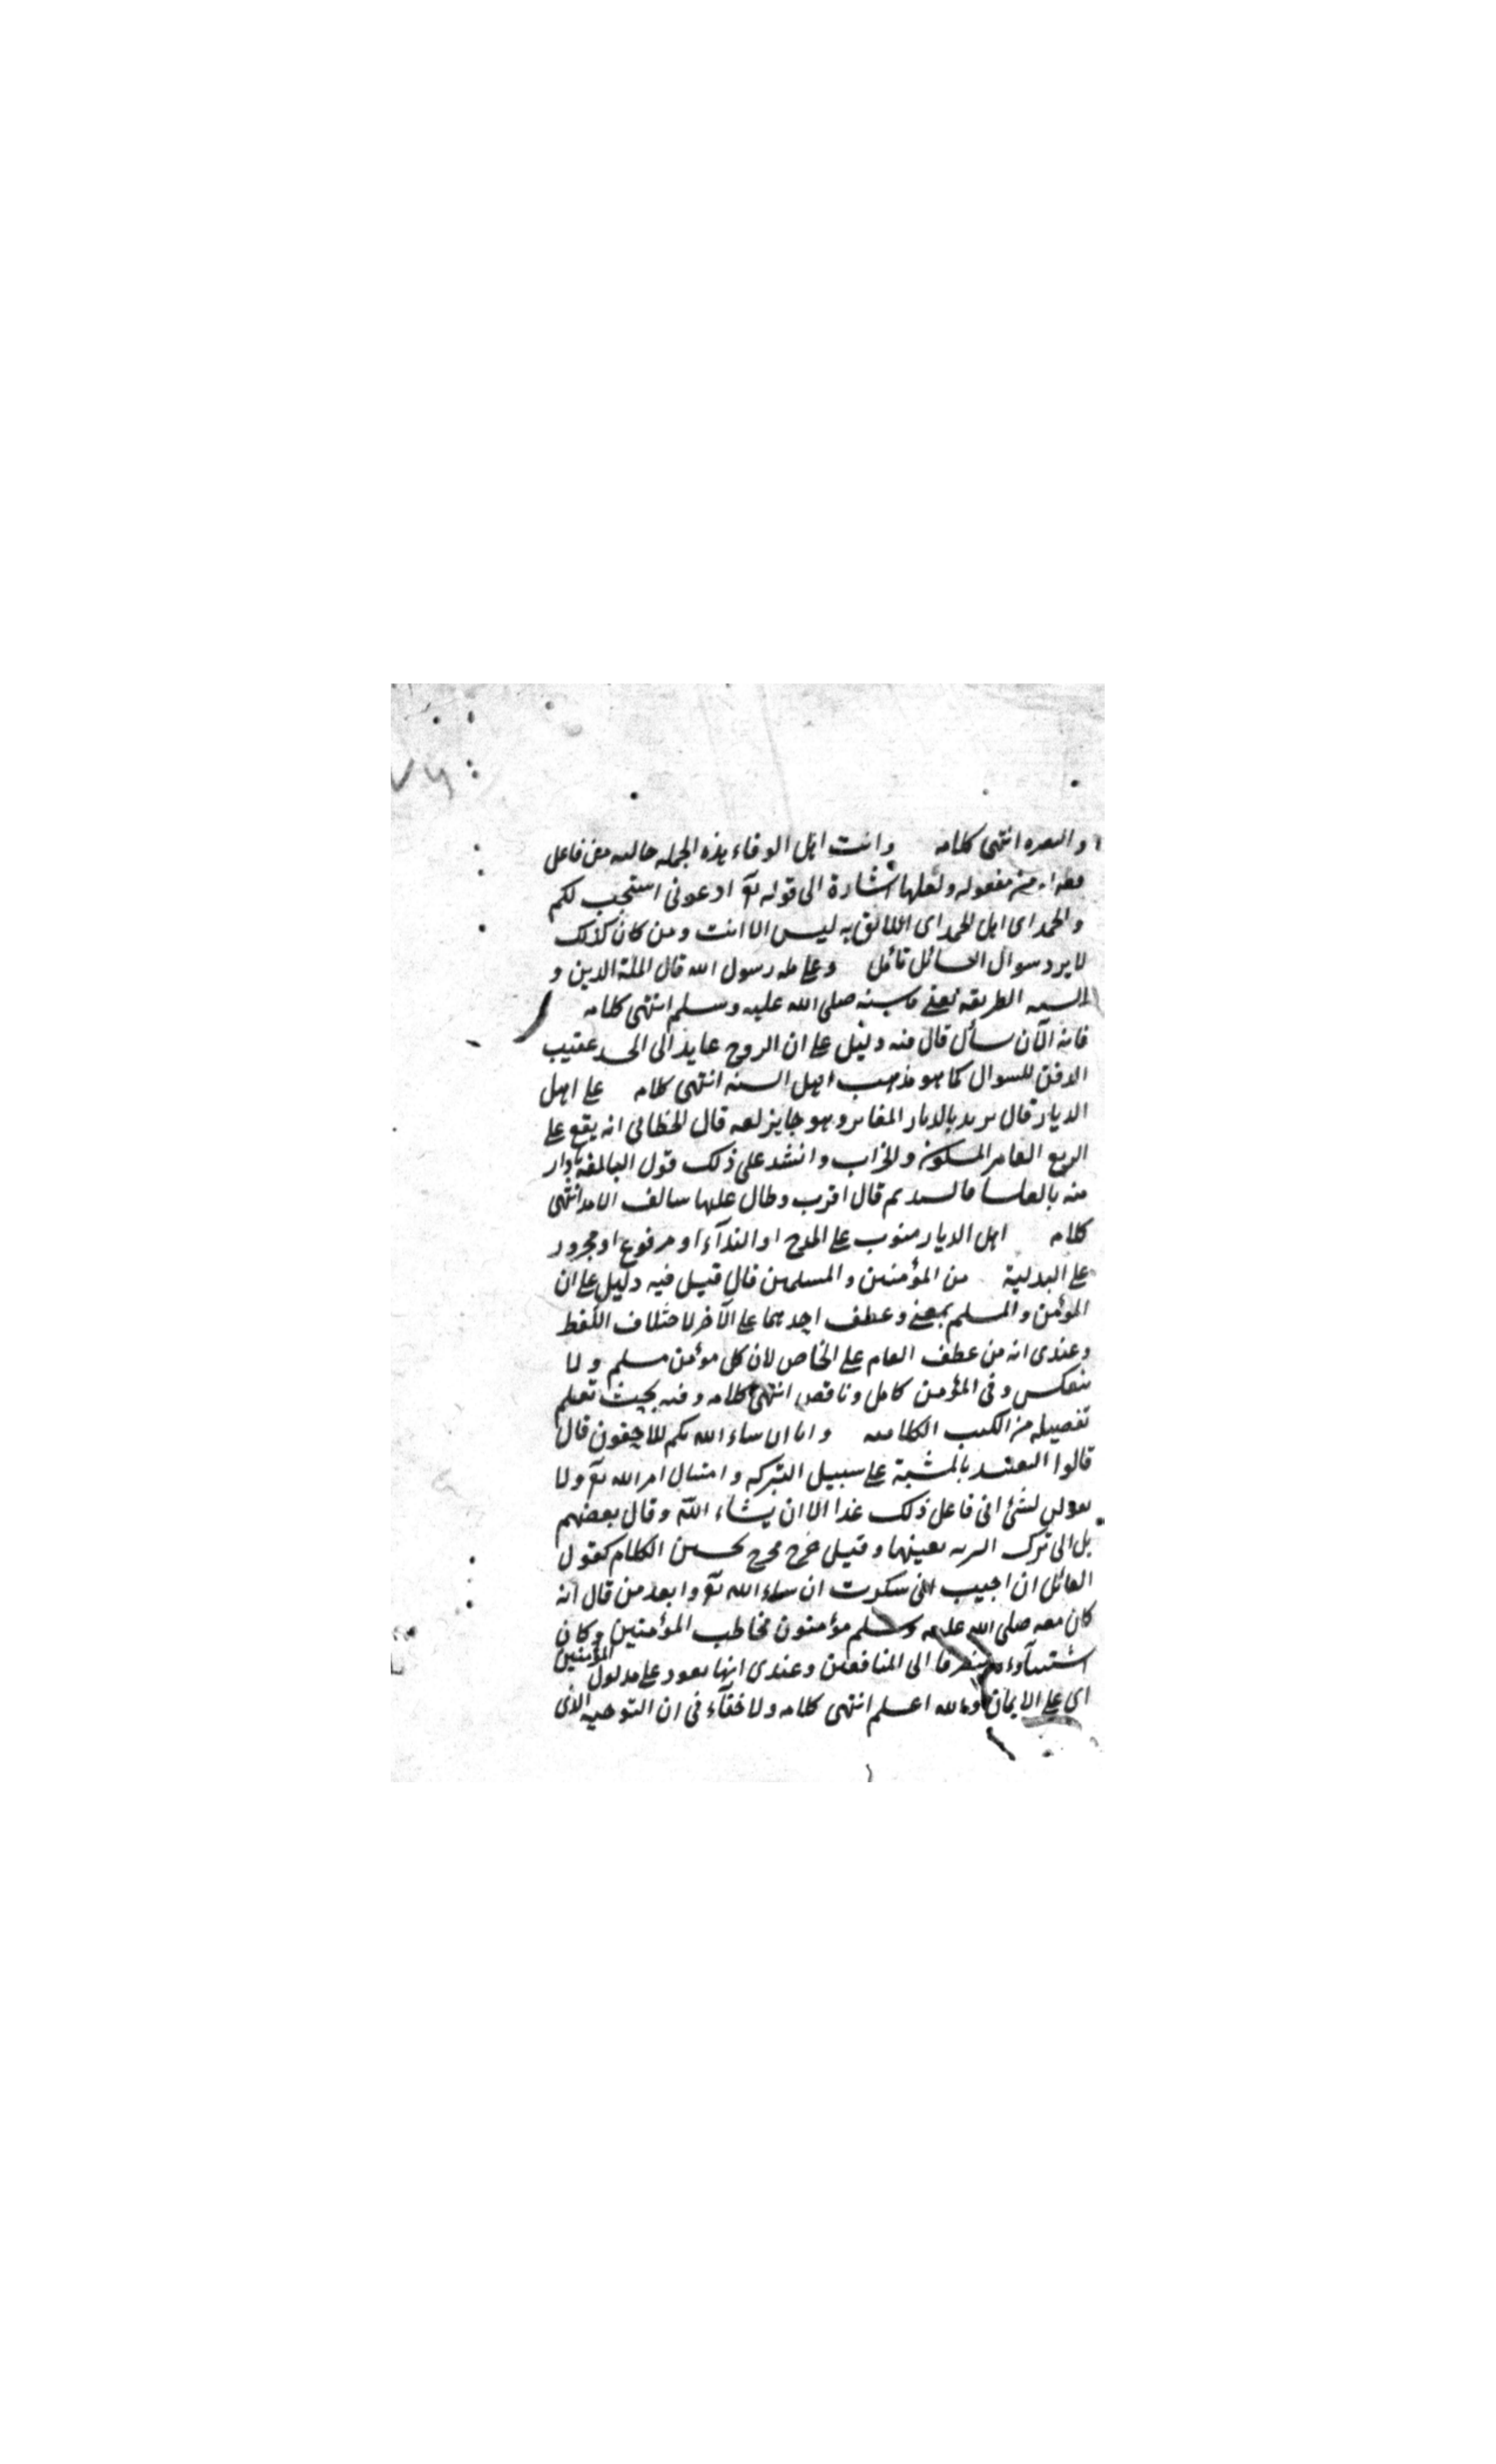 والنصره انتهى كلامه وانت اهل الوفاء هذه الجمله حاليه من فاعل
من مفعوله ولعلها اشارة الى قوله تع ادعونى استجب لكم
والحمد اى اهل الحمد اى اللائق به ليس الا انت ومن كان كذلك
لا يرد سوال السائل تأمل وعلى مله رسول الله قال الملة الدين و
السنه الطريقه يعنى ما سنه صلى الله عليه وسلم انتهى كلامه
فانه الآن يسأل قال فيه دليل على ان الروح عايد الى الجسد عقيب
الدفن للسوال كما هو مذهب اهل السنه انتهى كلامه على اهل
الديار قال يريد بالديار المقابر وهو جايز لغه قال الخطابى انه يقع على
الربع العامر المسكون والخراب وانشد على ذلك قول النابغة يا دار
ميه بالعليا فالسند ثم قال اقوت وطال عليها سالف الامد انتهى
كلامه اهل الديار منصوب على المدح او النداء او مرفوع او مجرور
على البدلية من المؤمنين والمسلمين قال قيل فيه دليل على ان
المؤمن والمسلم بمعنى وعطف احدهما على الآخر لاختلاف اللفظ
وعندى انه من عطف العام على الخاص لان كل مؤمن مسلم ولا
ينعكس وفى المؤمن كامل وناقص انتهى كلامه وفيه بحث تعلم
تفصيله من الكتب الكلاميه وانا ان شاء الله بكم للاحقون قال
قالوا التقييد بالمشية على سبيل التبرك وامتثال امر الله تع ولا
تقولن لشئ انى فاعل ذلك غدا الا ان يشاء الله وقال بعضهم
بل الى ترك التربه بعينها وقيل خرج مخرج تحسين الكلام كقول
القائل ان اجيب الى سكوت ان شاء الله تع وابعد من قال انه
كان معه صلى الله عليه وسلم مؤمنون مخاطب المؤمنين وكان
استثناؤه منصرفا الى المنافقين وعندى انها تعود على مدلول المؤمنين
اى على الايمان والله اعلم انتهى كلامه ولا خفآء فى ان التوجيه الذى